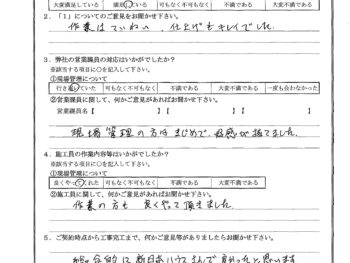 大変満足している 満足している 可もなく不可もなく 不満である 大変不満である
2．「1」についてのご意見をお聞かせ下さい。
作業はていねい、仕上げもキレイでした。
3．弊社の営業職員の対応はいかがでしたか？
※該当する項目に○を記入して下さい。
①現場管理について
行き届いていた 可もなく不可もなく 不満である 大変不満である 一度も会わなかった
②営業職員に関して、何かご意見があればお聞かせ下さい。
営業職員名【 】【 】【 】
現場管理の方はまじめで、好感が持てました。
4．施工員の作業内容等はいかがでしたか？
※該当する項目に○を記入して下さい。
①現場管理について
良くやってくれた 可もなく不可もなく 不満である 大変不満である
②施工員に関して、何かご意見があればお聞かせ下さい。
作業の方も良くやって頂きました。
5．ご契約時点から工事完工まで、何かご意見等がありましたらお聞かせ下さい。
総合的に新日本ハウスさんで良かったと思います